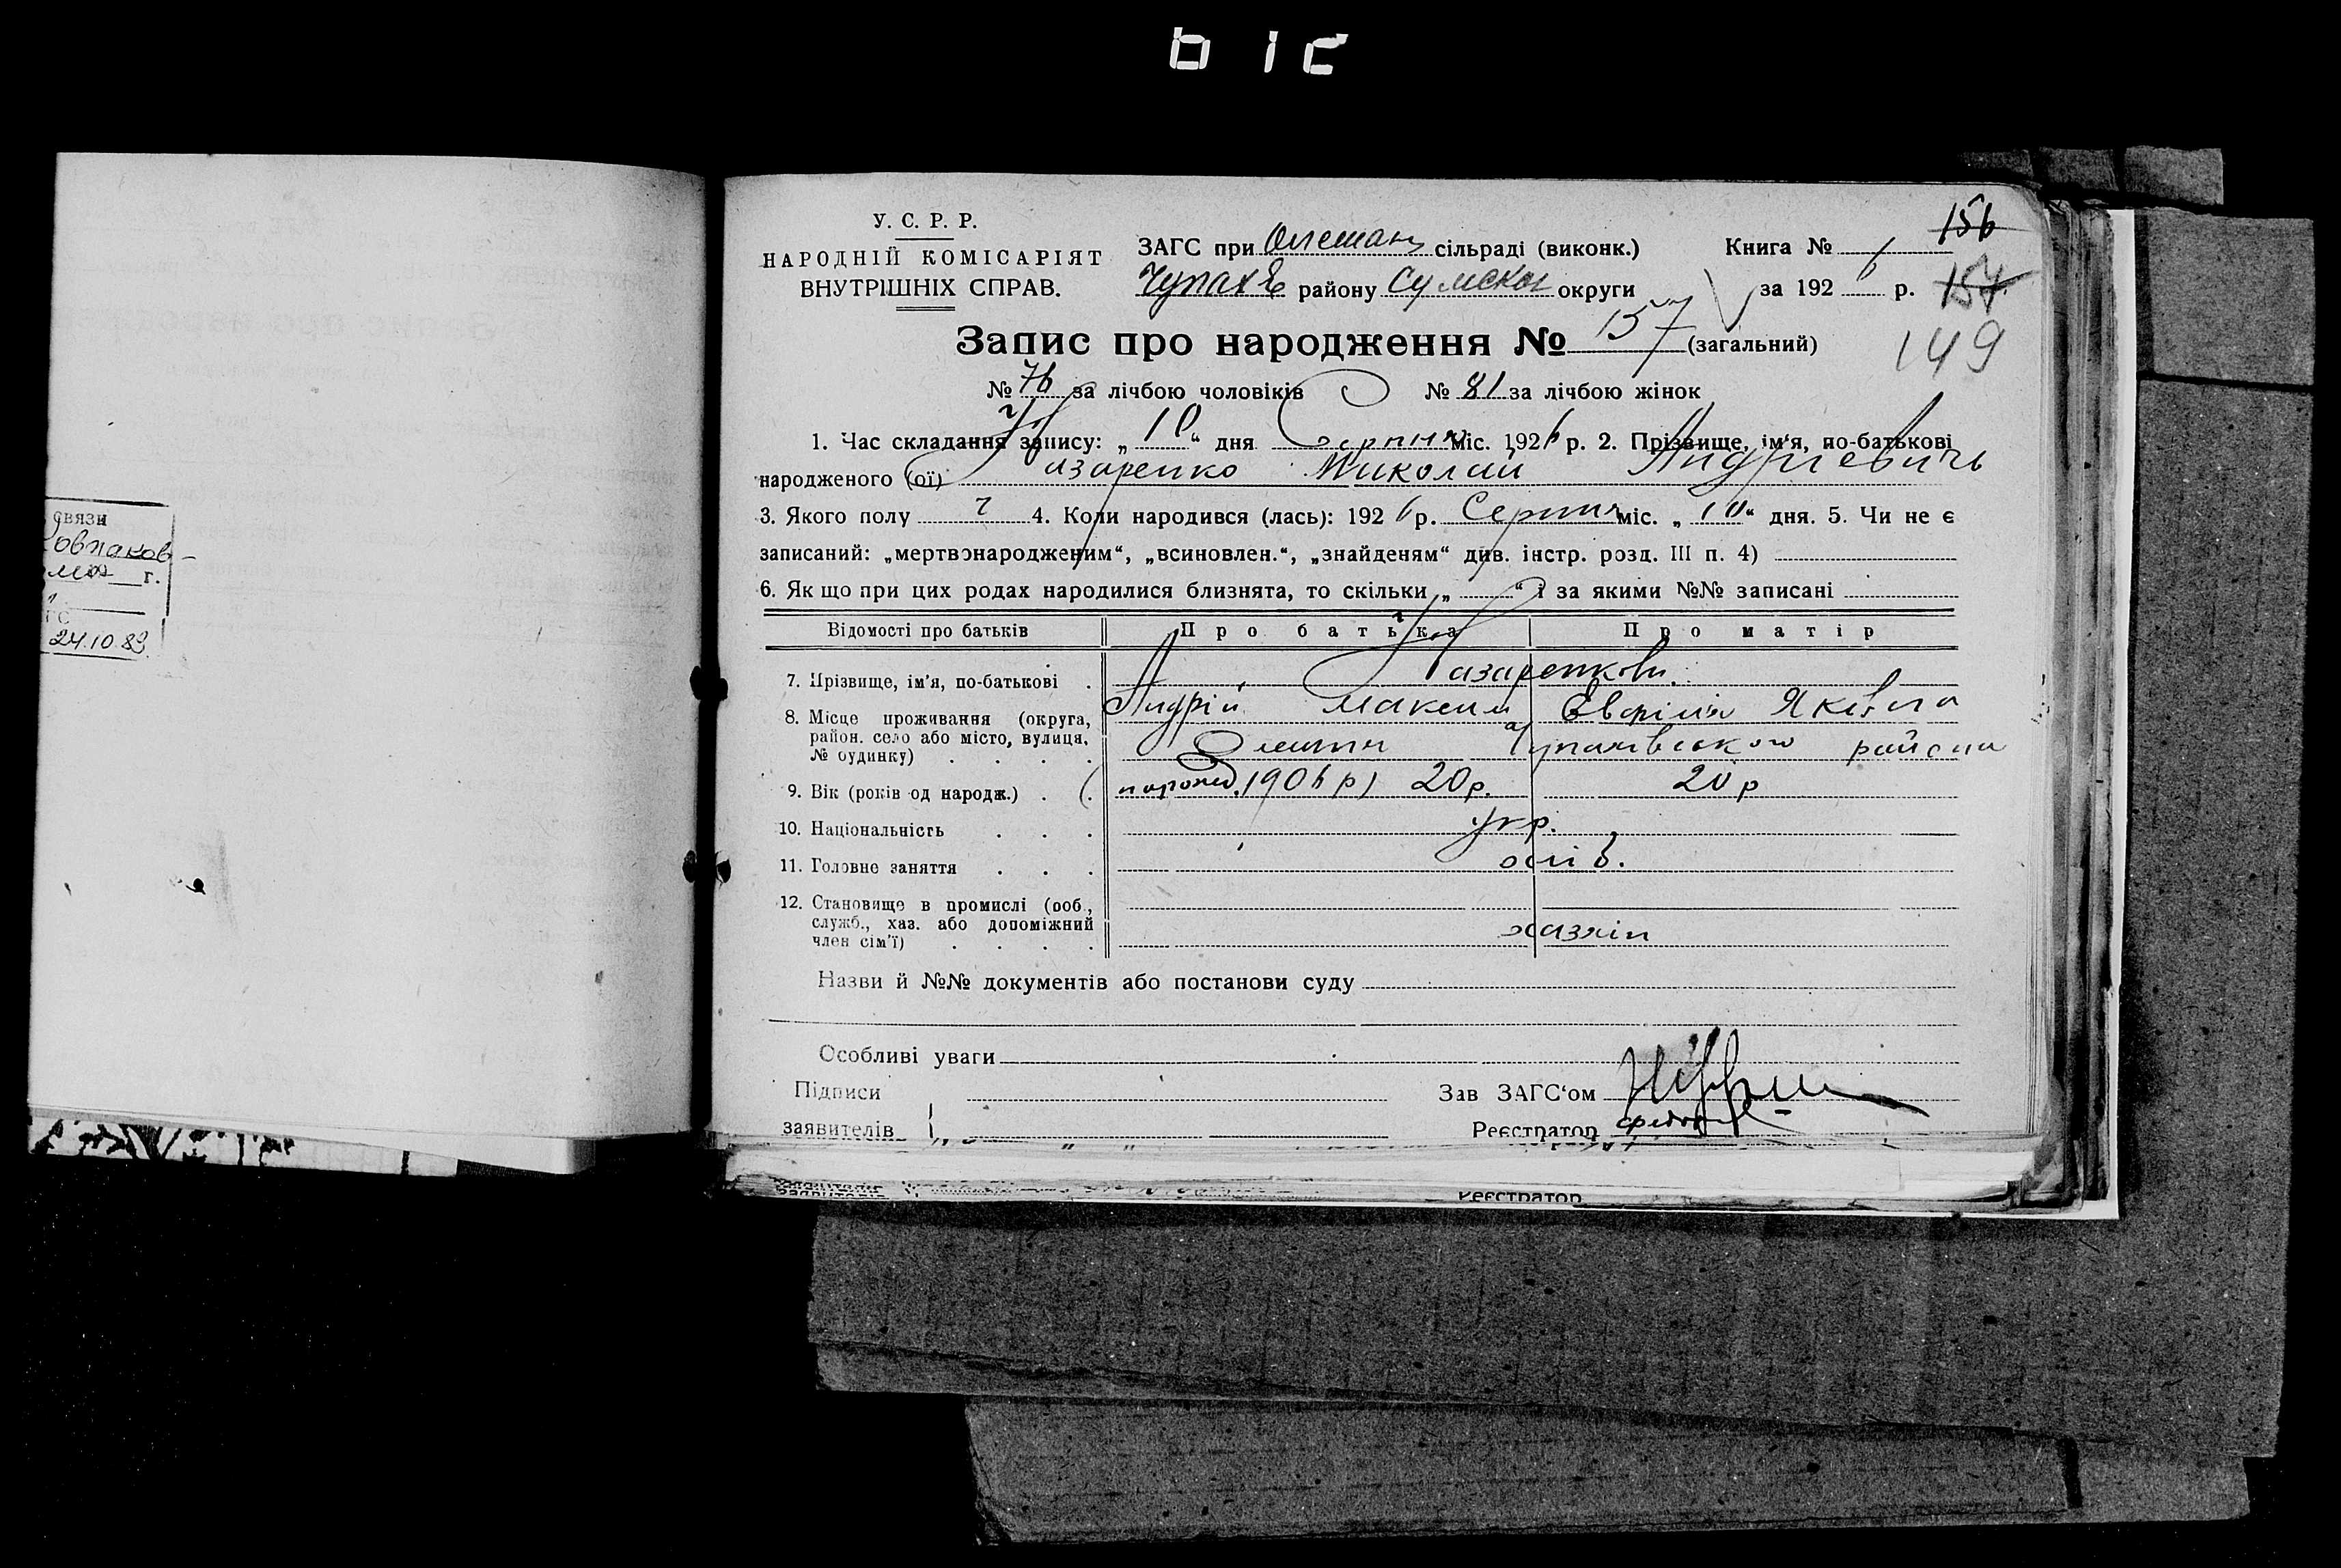 У. С. Р. Р.
НАРОДНІЙ КОМІСАРІЯТ
ВНУТРІШНІХ СПРАВ.
ЗАГС при Олешан сільраді (виконк.)
Чупахів району Сумской округи
Книга № 1
за 1926 р.
156
157
149
Запис про народження № 157 (загальний)
№ 76 за лічбою чоловіків № 81 за лічбою жінок
1. Час складання запису: „ 10 “ дня Серпня міс. 1926 р. 2. Прізвище, ім'я, по-батькові
народженого (ої) Назаренко Николай Андрієвичь
3. Якого полу ч 4. Коли народився (лась): 1926 р. Серпня міс. „ 10 “ дня. 5. Чи не є
записаний: „мертвонародженим“, „всиновлен.“, „знайденям“ див. інстр. розд. III п. 4)
6. Як що при цих родах народилися близнята, то скільки „ “ і за якими №№ записані
Відомості про батьків Про батька Про матір
7. Прізвище, ім'я, по-батькові . Назаренкови
Андрій Максим Евфімія Яківна
8. Місце проживання (округа,
район. село або місто, вулиця,
№ будинку) . . . . Олешня Чупахівського района
9. Вік (років од народж.) . (. народ. 1906 р) 20 р. 20 р
10. Національність . . . укр.
11. Головне заняття . . . хліб.
12. Становище в промислі (роб.,
служб., хаз. або допоміжний
член сім'ї) . . . . хазяін
Назви й №№ документів або постанови суду
Особливі уваги
Підписи
заявителів
Зав ЗАГС‘ом
Реєстратор
Реєстратор
связи
Ковпаков-
г.
24.10.83.